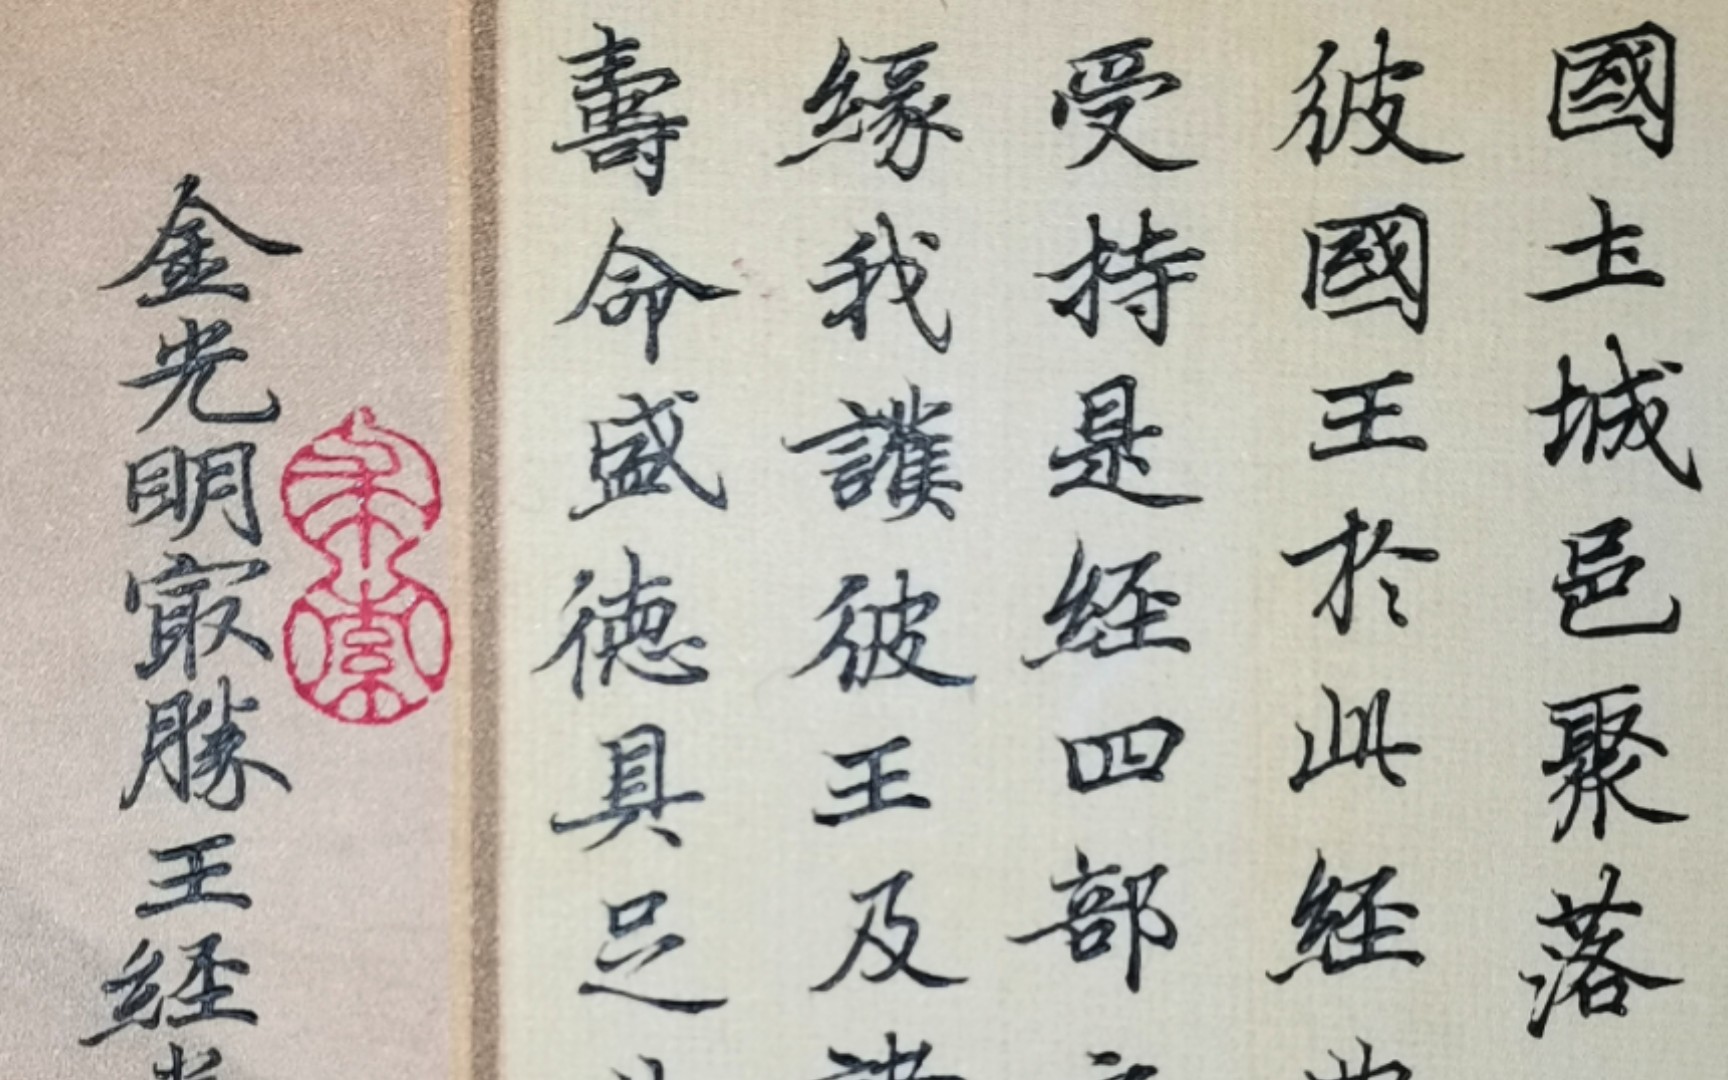 國土城邑聚落
彼國王於此経
受持是経四部
緣我護彼王及諸
壽命盛德具足
金光明寂勝王経